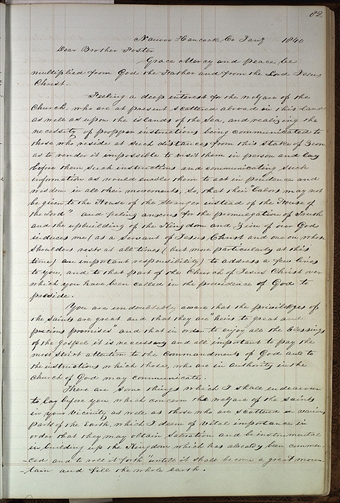 82
Nauvoo Hancock Co Jany 1840
Dear Brother Foster
Grace Mercy and peace be
multiplied from God the Father and from the Lord Jesus
Christ.
Feeling a deep interest for the welfare of the
Church, who are at present scattered abroad in this land
as well as upon the islands of the Sea, and realizing the
necessity of proper instructions being communicated to
those who reside at such distances from this stake of Zion
as to render it impossible to visit them in person and lay
before them such instructions and communicating such
information as would enable them to act in prudence and
wisdom in all their movements, So, that their labors may not
be given to the House of the stranger instead of the House of
the Lord" and feeling anxious for the promulgation of Truth
and the upbuilding of the Kingdom and Zion of our God
induces me (as a servant of Jesus Christ and one on whose
shoulders rests at all times (but more particularly at this
time) an important responsibility) to address a few lines
to you, and to that part of the Church of Jesus Christ over
which you have been called in the providence of God to
preside.
You are undoubtedly aware that the privileges of
the Saints are great and that they are heirs to great and
precious promises and that in order to enjoy all the blessings
of the gospel it is necessary and all important to pay the
most strict attention to the Commandments of God and to
the instructions which those, who are in authority in the
Church of God may communicate.
There are some things which I shall endeavor
to lay before you which concern the welfare of the Saints
in your vicinity as well as those who are scattered in various
parts of the Earth, which I deem of vital importance in
order that they may obtain Salvation and be instrumental
in building up the Kingdom which has already been commen
-ced and to roll it forth "untill it shall become a great moun
-tain and fill the whole Earth".